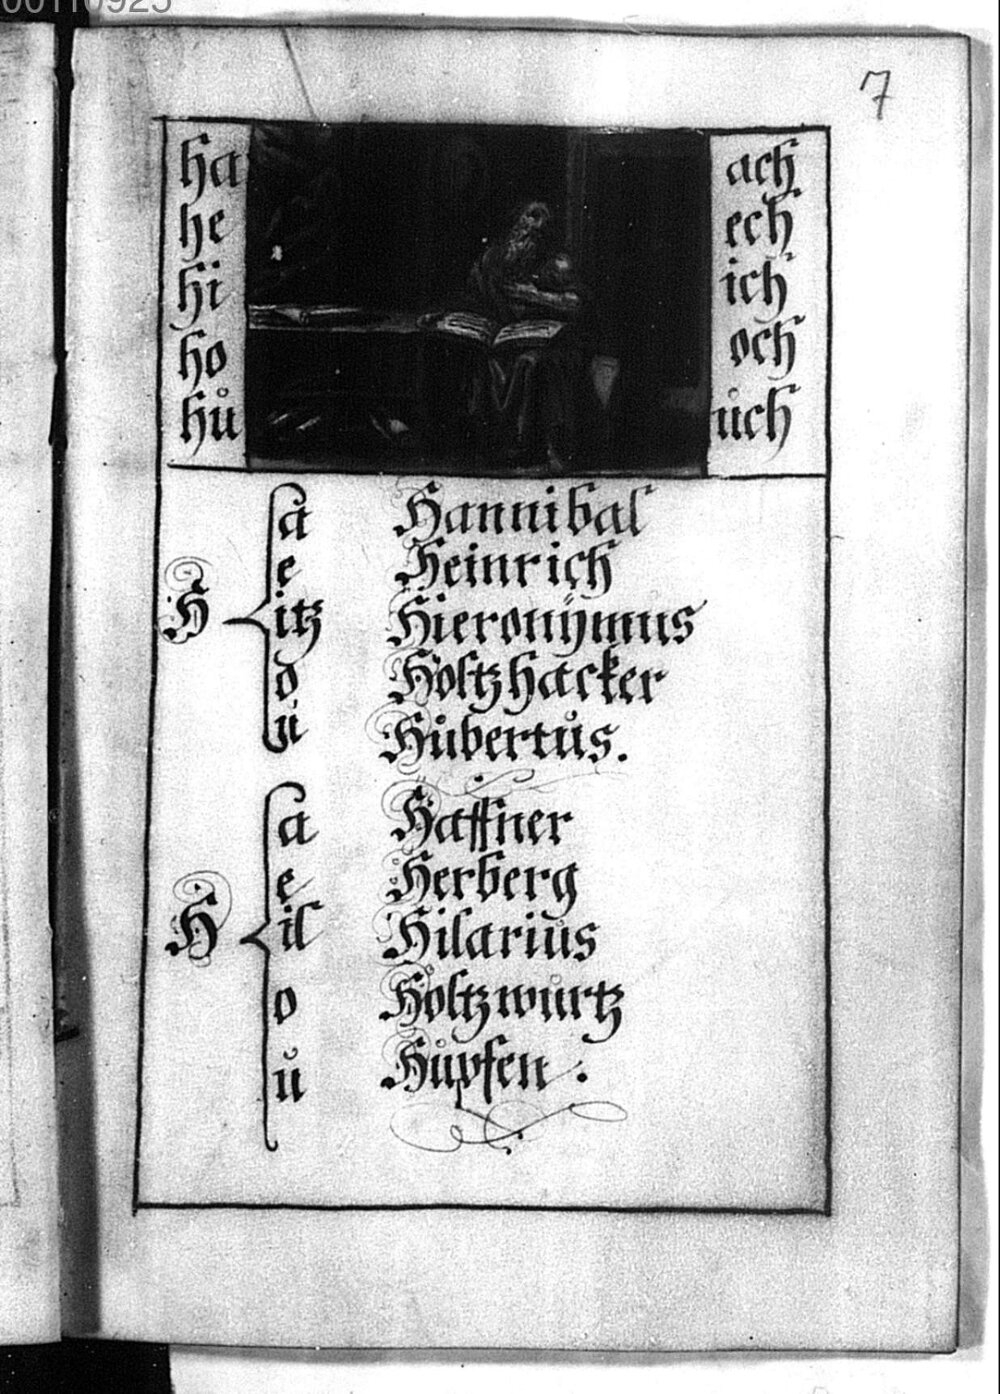 00110925
7
ha ach
he ech
hi ich
ho och
hů ůch
a Hannibal
e Heinrich
H itz Hieronÿmus
o Holtzhacker
ů Hůbertůs.
a Haffner
e Herberg
H il Hilariůs
o Holtzwůrtz
ů Hůpfen.